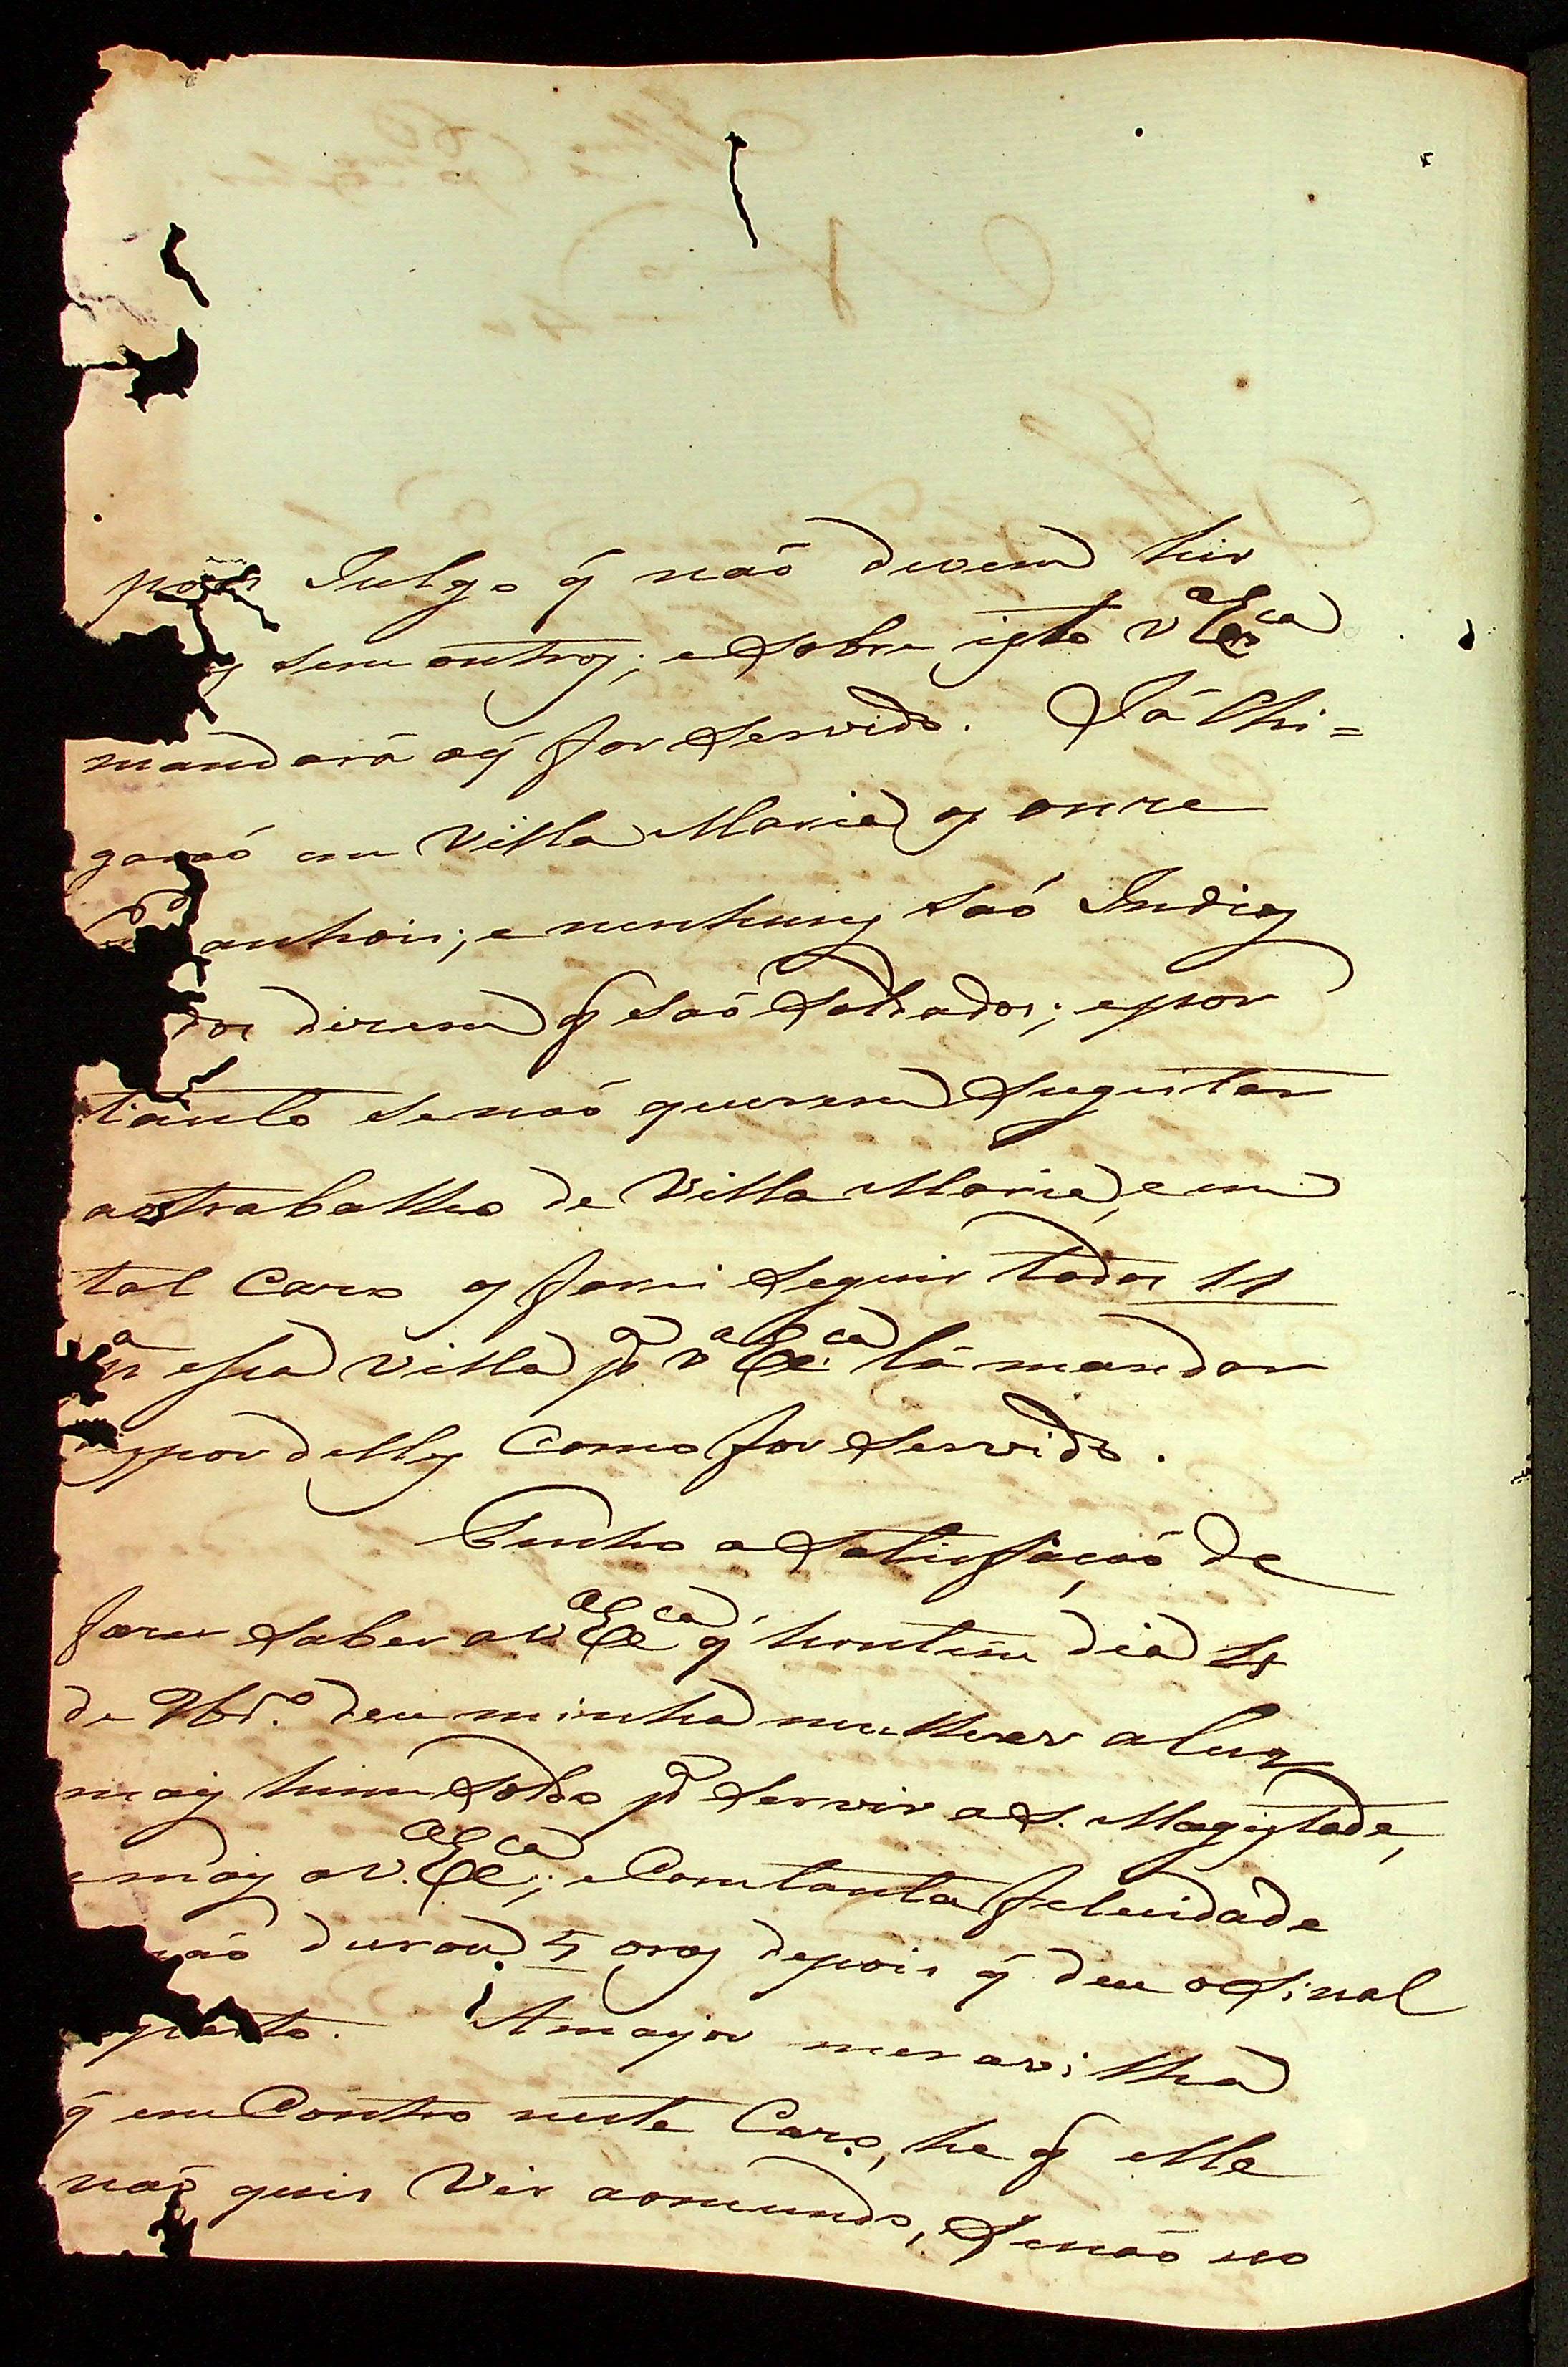 pois Julgo q̃ naõ devem hir
sem outros; e Sobre isto V Exca
mandará oq̃ for Servido. Já Che=
garaõ em Villa Maria os onze
anhois; e nenhuns saõ Indios
dos dizem q̃ saõ Soldados; e por
tanto se naõ querem Sugeitar
ao trabalho de Villa Maria, e em
tal Cazo os farei Seguir todos 11
pa essa Villa pa V Exca lá mandar
dispor delles Como for Servido.
Tenho a Satisfaçaõ de
fazer Saber a V Exca q̃ hontem dia
de 9br.o deu minha mulher a luz
mais hum Soldo pa Servir a S. Magestade,
e mais a V. Exca; e Com tanta felicidade
naõ durou 5 oras depois q̃ deu o Sinal
parto. A mayor maravilha
q̃ em Contro neste Cazo, he q̃ elle
naõ quis Vir ao mundo, Senaõ no